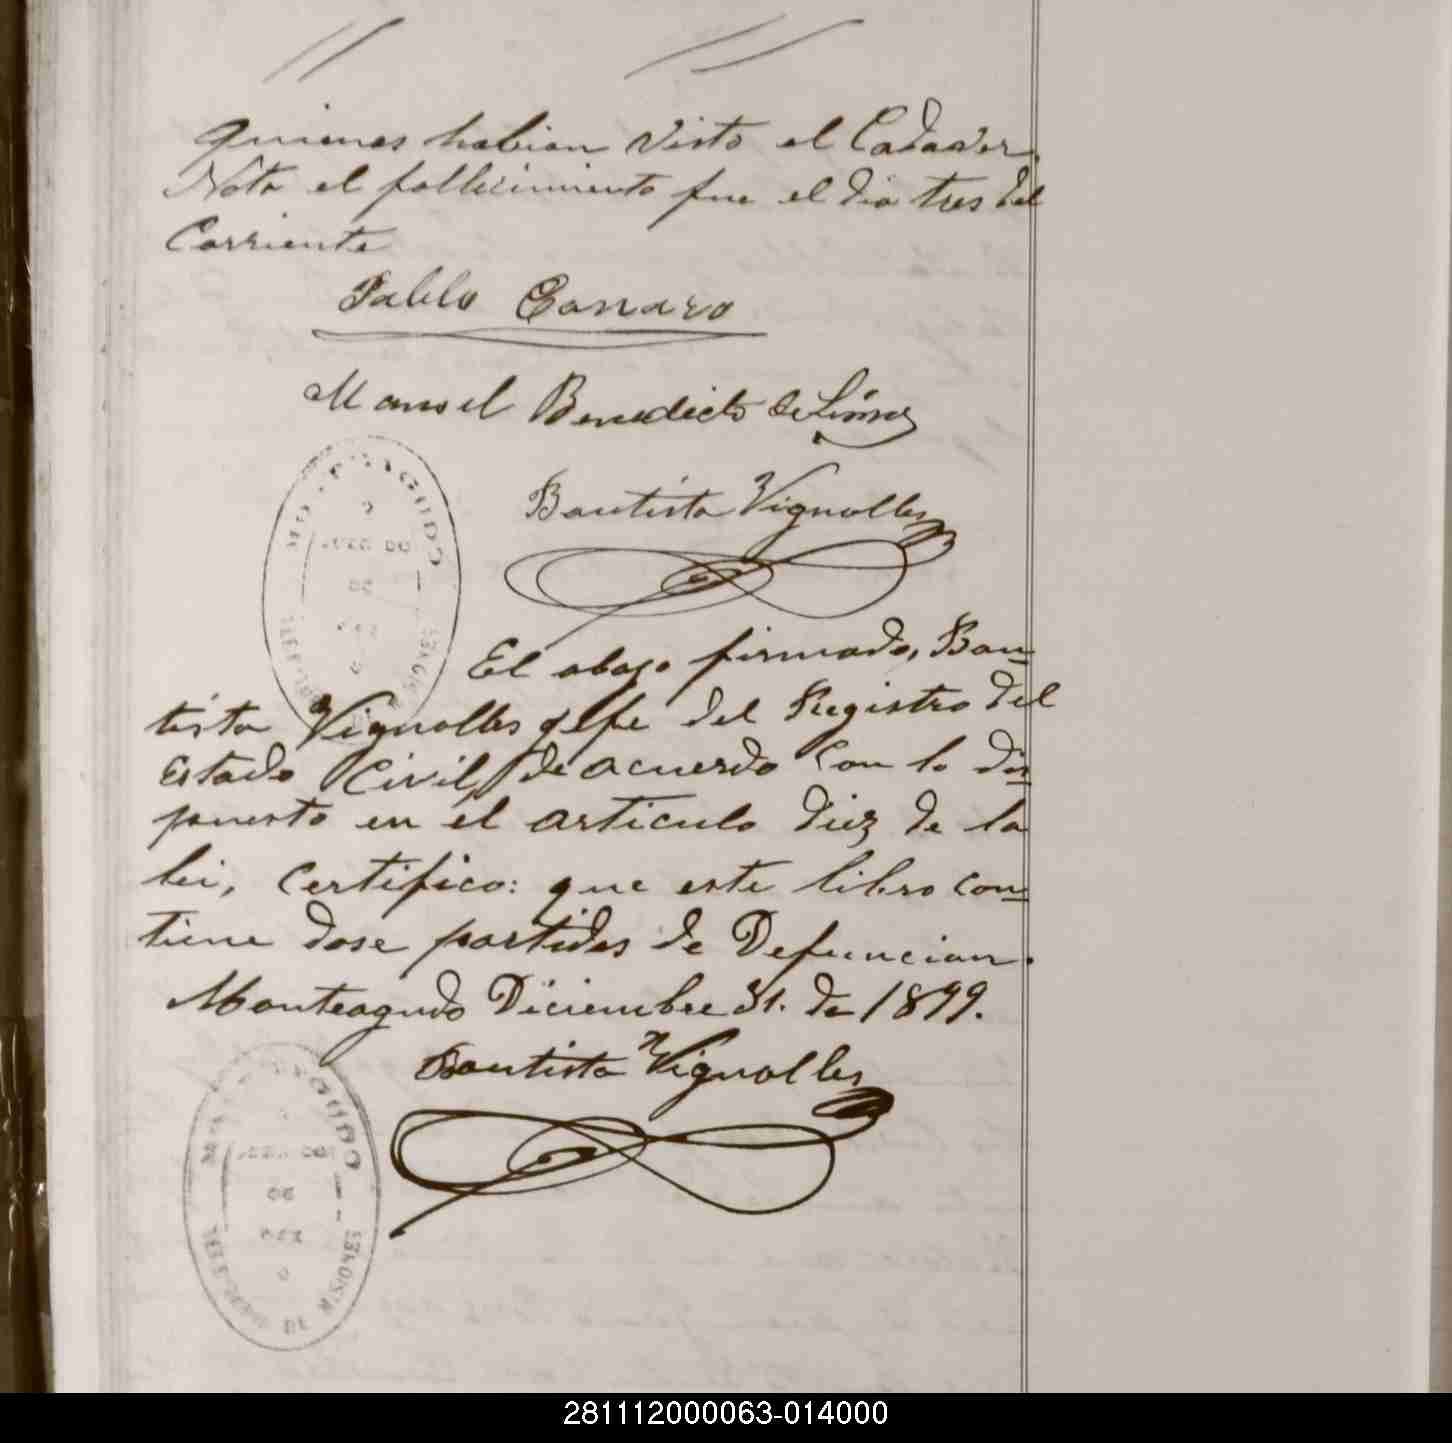 Quienes habian visto el Cadaver.
Nota el fallecimiento fue el dia tres del
Corriente
Pablo
Manoel Benedicto de Lima
Bautista Vignolles
El abajo firmado, Bau=
tista Vignolles gefe del Registro del
Estado Civil, de acuerdo con lo dis=
puesto en el articulo diez de la
lei, Certifico: que este libro con=
tiene dose partidas de Defuncion.
Monteagudo Diciembre 31. de 1899.
Bautista Vignolles
MONTEAGUDO
DE MISIONES
281112000063-014000